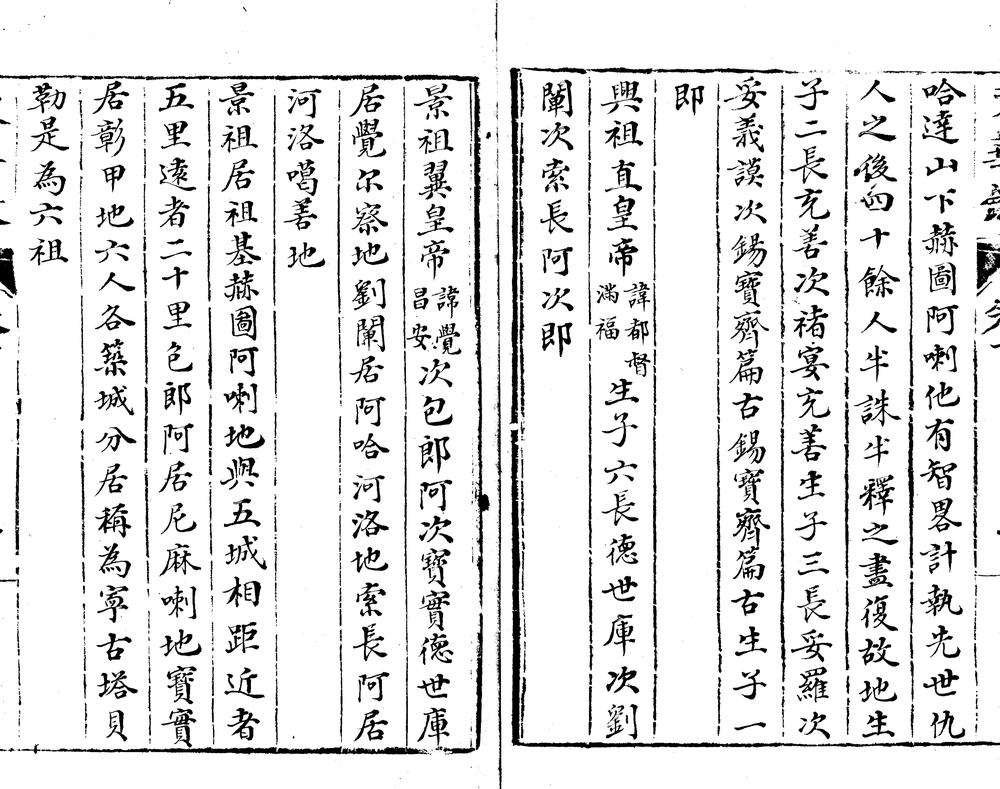 哈達山下赫圖阿喇他有智畧計執先世仇
人之後四十餘人半誅半釋之盡復故地生
子二長充善次褚宴充善生子三長妥羅次
妥義謨次錫寶齊篇古錫寶齊篇古生子一
即
興祖直皇帝諱都督滿福生子六長德世庫次劉
闡次索長阿次即
景祖翼皇帝諱覺昌安次包郎阿次寶實德世庫
居覺尔察地劉闡居阿哈河洛地索長阿居
河洛噶善地
景祖居祖基赫圖阿喇地與五城相距近者
五里遠者二十里包郎阿居尼麻喇地寶實
居彰甲地六人各築城分居稱為寧古塔貝
勒是為六祖